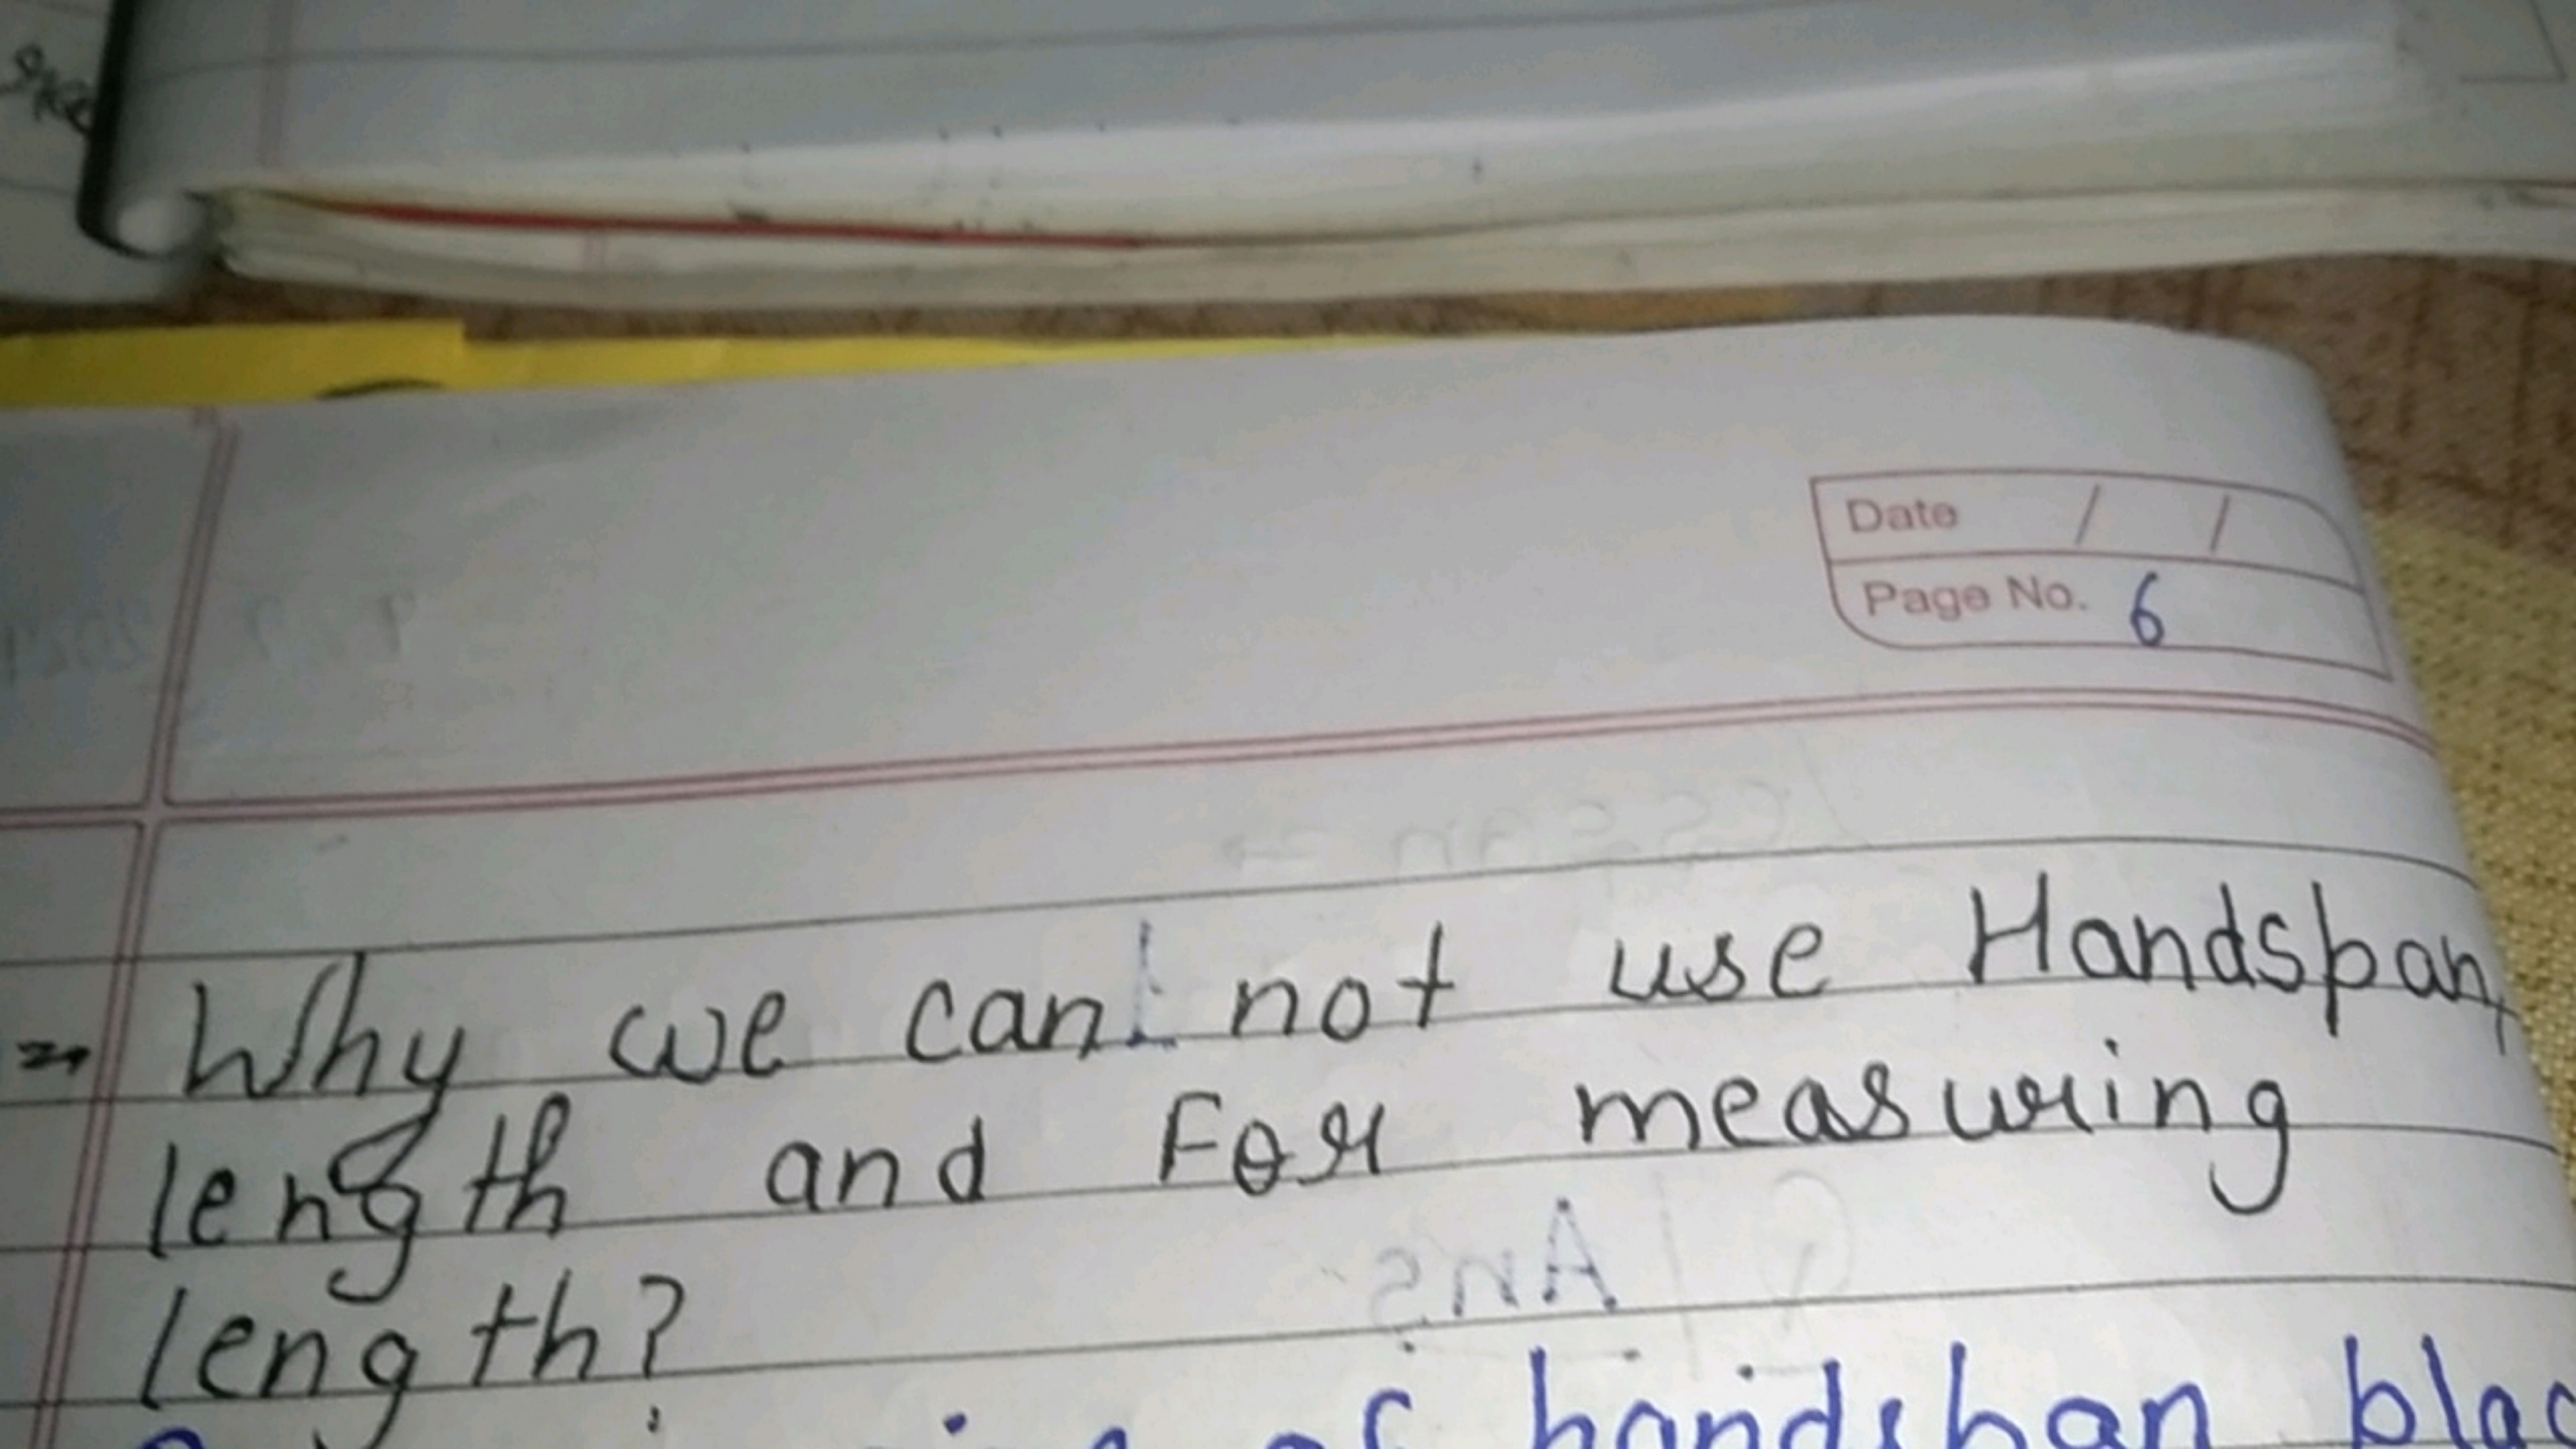 Date / /
Page No. 6
Why we can not use Handspan,
length and For measuring
length?
of handspan